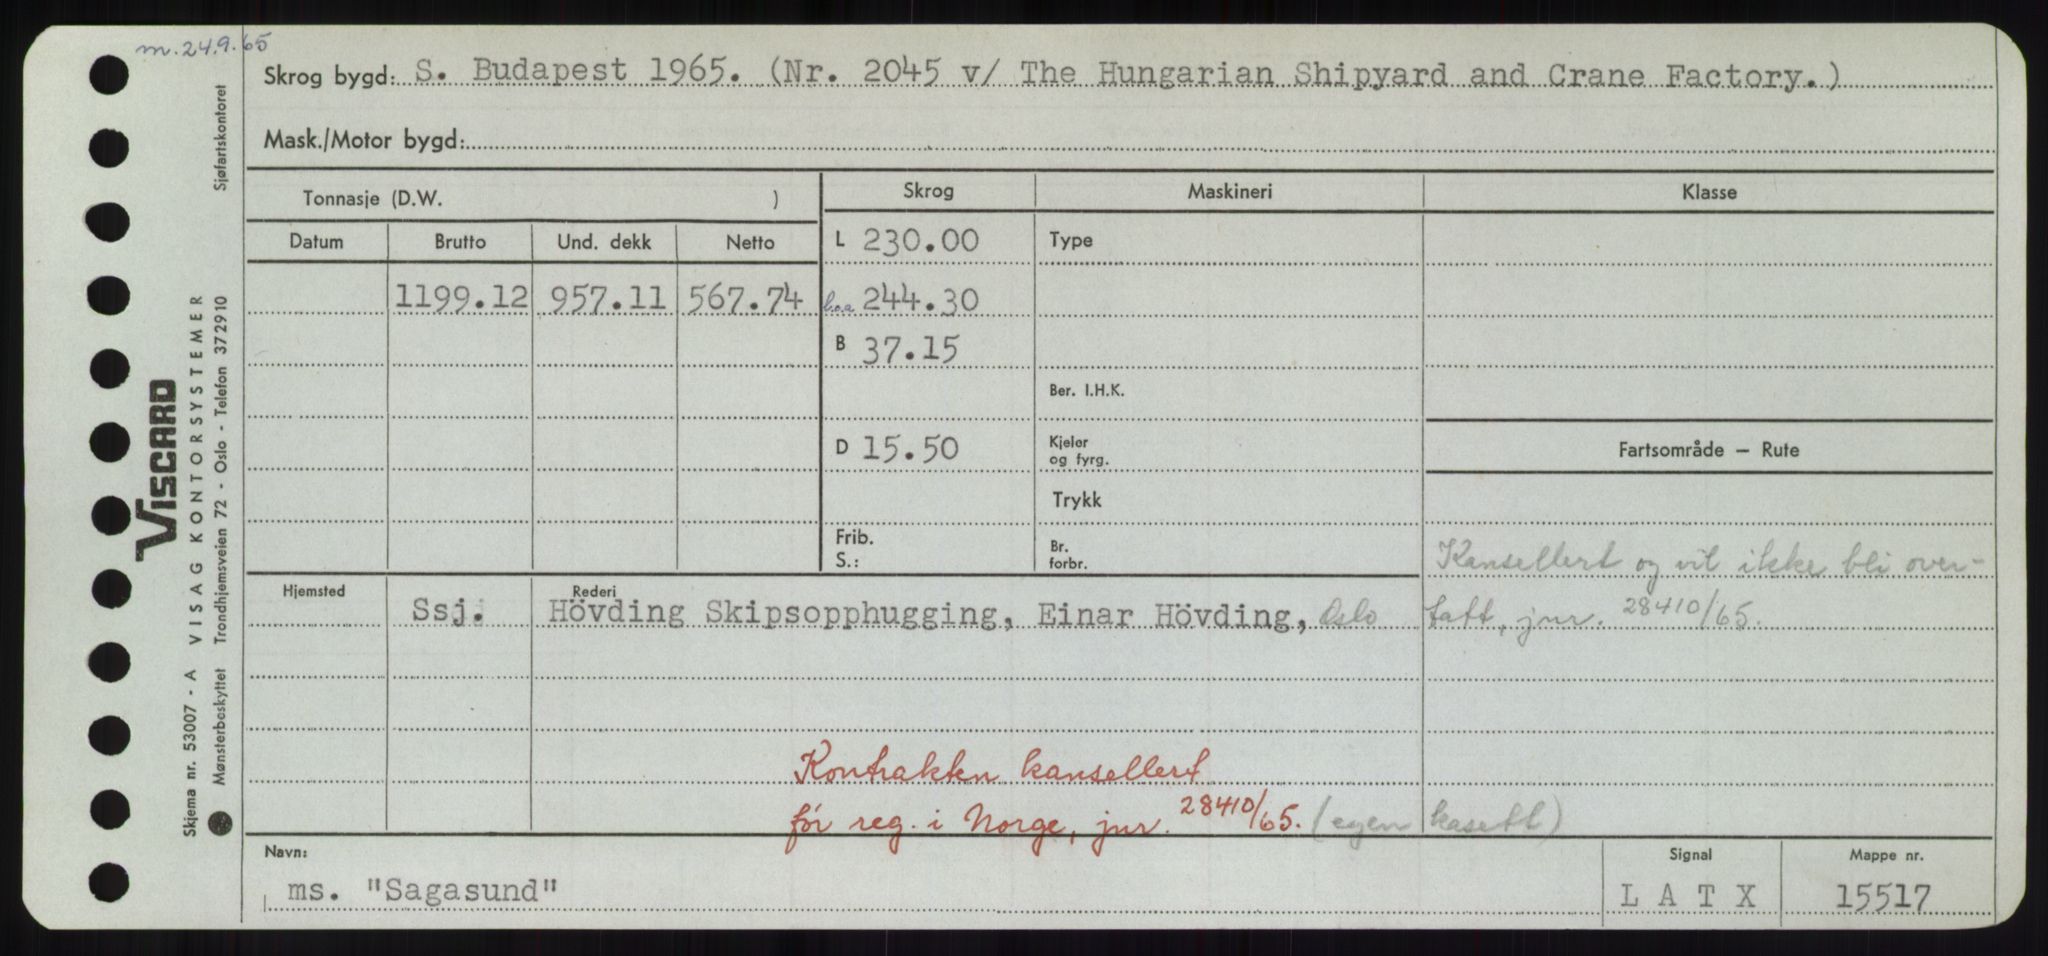 m. 24.9.65
Skrog bygd: S. Budapest 1965. (Nr. 2045 v/ The Hungarian Shipyard and Crane Factory.)
Mask./Motor bygd:
Tonnasje (D.W. )
Skrog
Maskineri
Klasse
Datum Brutto Und. dekk Netto
L 230.00
Type
1199.12 957.11 567.74
b.o.a 244.30
B 37.15
Ber. I.H.K.
D 15.50
Kjeler
og fyrg.
Fartsområde — Rute
Trykk
Frib.
S.:
Br.
forbr.
Kansellert og vil ikke bli over-
tatt, jnr. 28410/65.
Hjemsted
Rederi
Ssj. Hövding Skipsopphugging, Einar Hövding, Oslo
Kontrakten kansellert
før reg. i Norge, jnr. 28410/65. (egen kasett)
Navn:
Signal
Mappe nr.
ms. "Sagasund"
L A T X
15517
Sjøfartskontoret
VISCARD
VISAG KONTORSYSTEMER
Trondhjemsveien 72 - Oslo - Telefon 372910
Skjema nr. 53007 - A
Mønsterbeskyttet